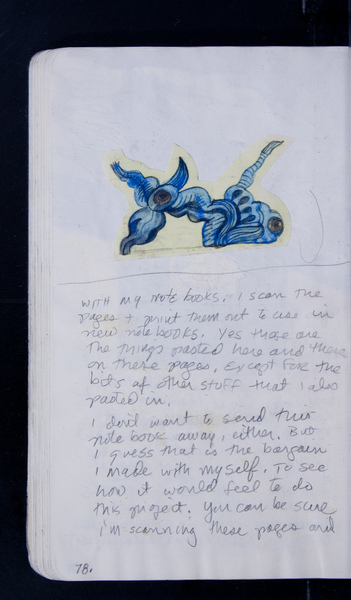 with my note books. I scan the
pages + print them out to use in
new notebooks. Yes those are
the things pasted here and there
on these pages. Except for the
bits of other stuff that I also
pasted in.
I don't want to send this
note book away, either. But
I guess that is the bargain
I made with myself. To see
how it would feel to do
this project. You can be sure
I'm scanning these pages and
78.